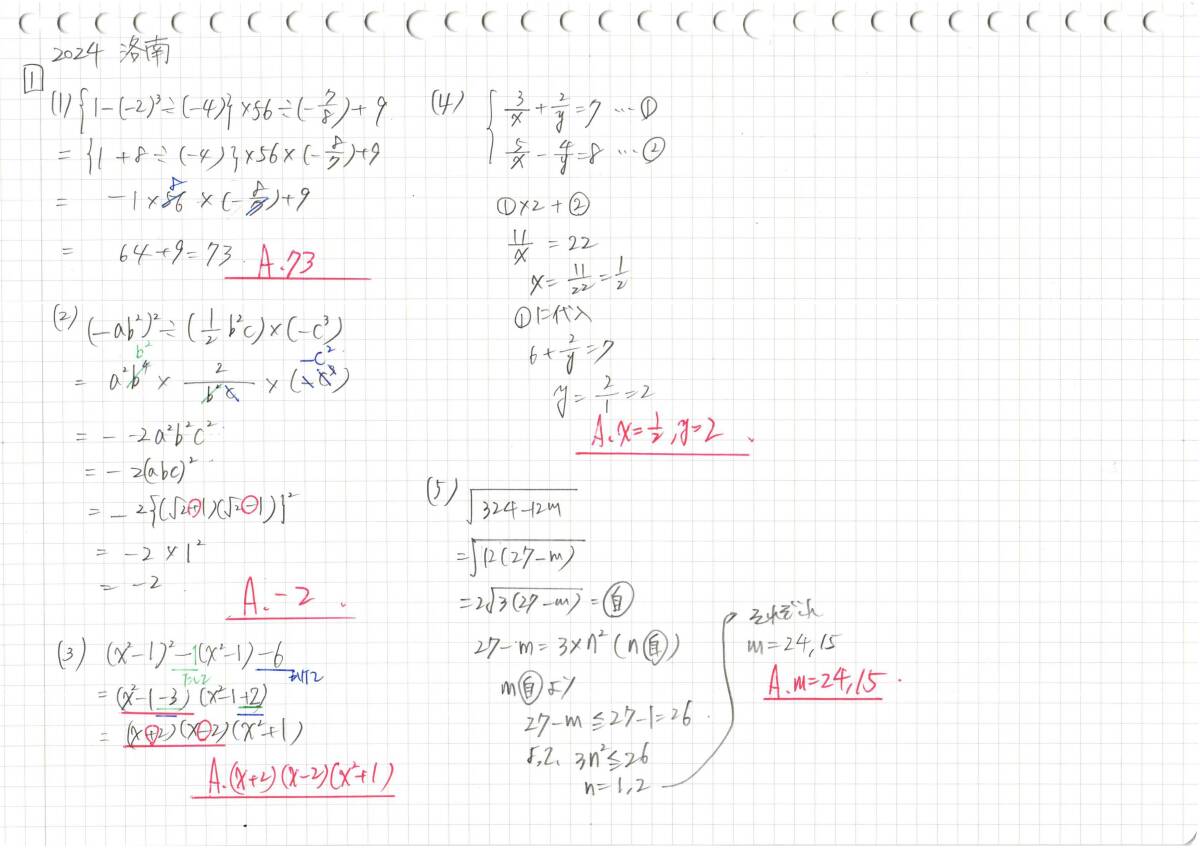 2024 洛南
1
(1) {1-(-2)³÷(-4)}×56÷(-7/8)+9
= {1+8÷(-4)}×56×(-8/7)+9
= -1×56×(-8/7)+9
8
= 64+9=73.
A.73
(2) (-ab²)²÷(1/2 b²c)×(-c³)
b² -c²
= a²b⁴ × 2/b²c × (-c³)
= - 2a²b²c²
= -2(abc)²
= -2{(√2+1)(√2-1)}²
= -2×1²
= -2
A.-2.
(3) (x²-1)²-1(x²-1)-6
たして かけて
= (x²-1-3)(x²-1+2)
= (x+2)(x-2)(x²+1)
A.(x+2)(x-2)(x²+1)
(4) {3/x+2/y=7 …①
5/x-4/y=8 …②
①×2+②
11/x=22
x=11/22=1/2
①に代入
6+2/y=7
y=2/1=2
A.x=1/2,y=2.
(5) √324-12m
=√12(27-m)
=2√3(27-m)=自
27-m=3×n²(n自)
m自より
27-m≦27-1=26.
よって、3n²≦26
n=1,2
それぞれ
m=24,15
A.m=24,15.